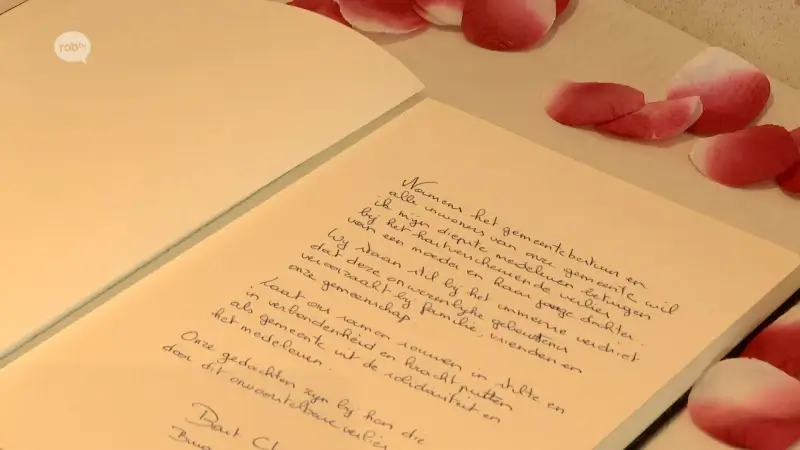 robtv
Namens het gemeentebestuur en
alle inwoners van onze gemeente wil
ik mijn diepste medeleven betuigen
bij het hartverscheurende verlies
van een moeder en haar jonge dochter.
Wij staan stil bij het immense verdriet
dat deze onwezenlijke gebeurtenis
veroorzaakt bij familie, vrienden en
onze gemeenschap.
Laat ons samen rouwen in stilte en
in verbondenheid en kracht putten
als gemeente uit de solidariteit en
het medeleven.
Onze gedachten zijn bij hen die
door dit onvoorstelbare verlies
Bart Cl